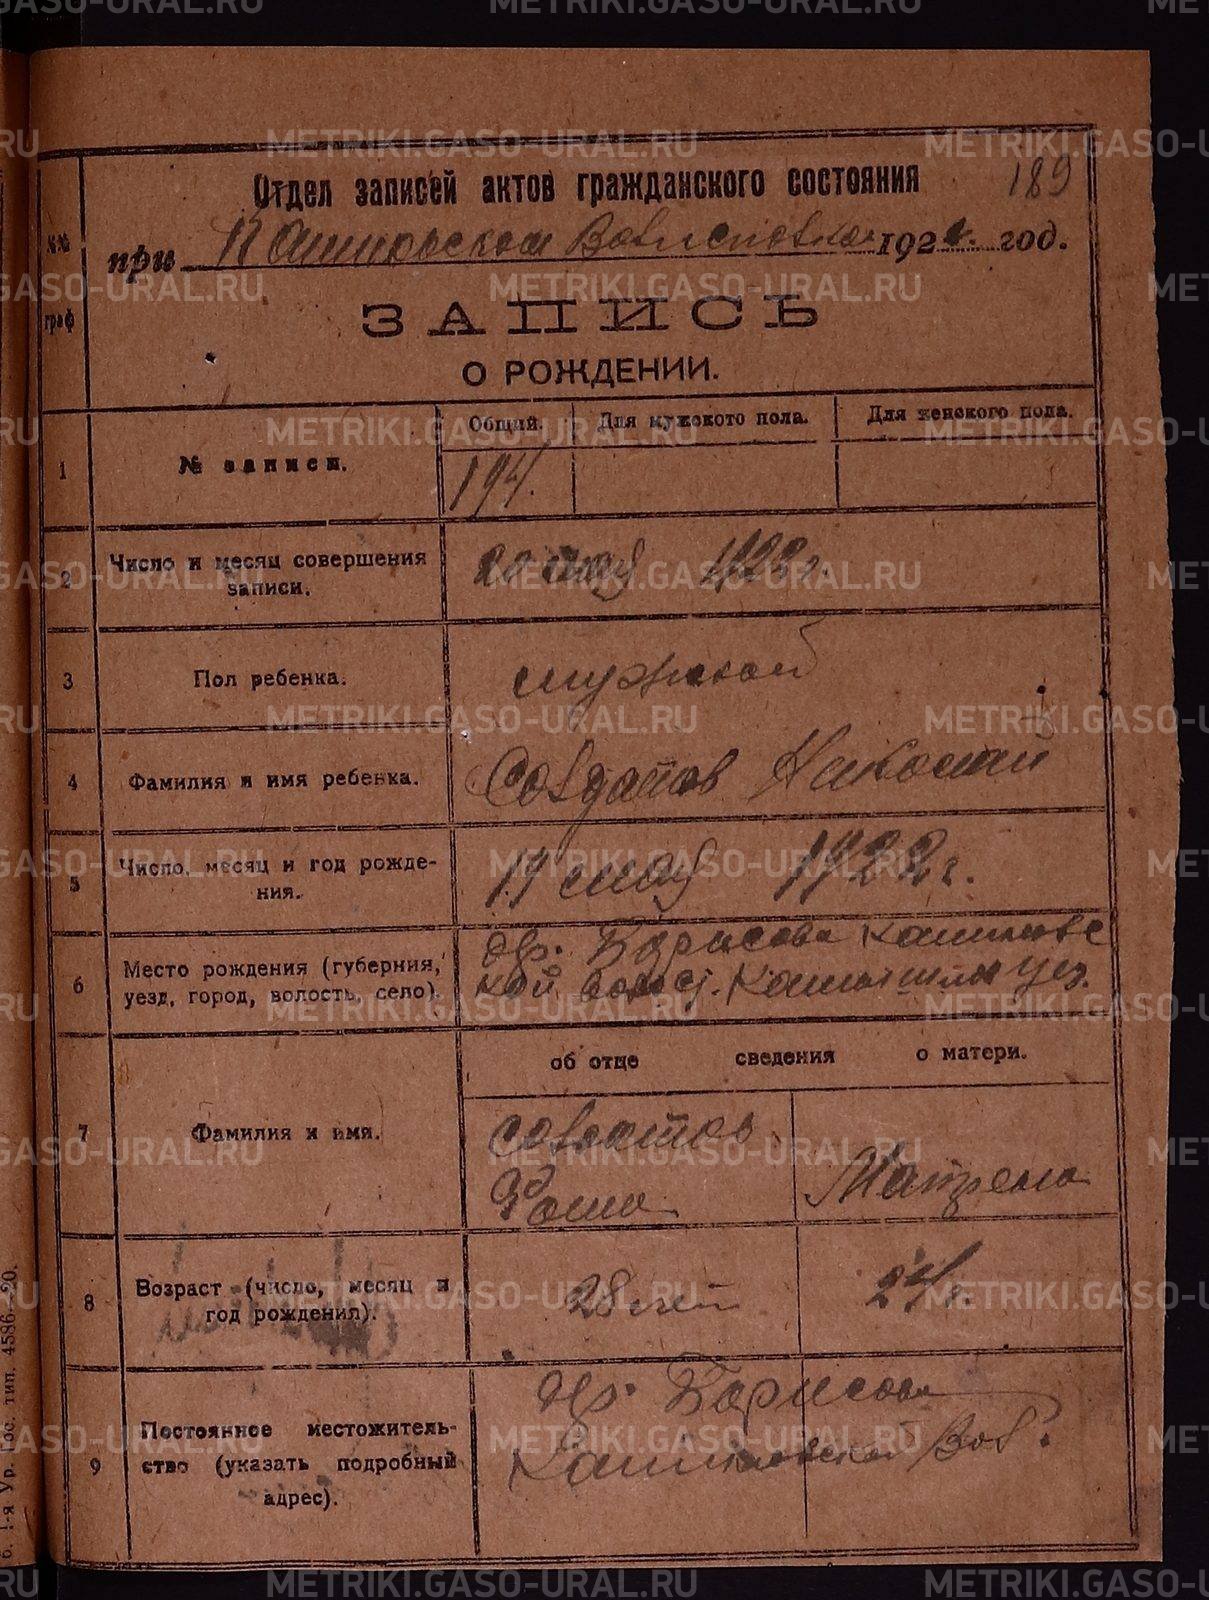 189
Отдел записей актов гражданского состояния
при Волисполком 192 год.
№№ граф
ЗАПИСЬ
О РОЖДЕНИИ.
Общий. Для мужского пола. Для женского пола.
1 № записи. 194.
2 Число и месяц совершения
записи. 20 мая 1922 г.
3 Пол ребенка. мужской
4 Фамилия и имя ребенка. Солдатов Николай
5 Число, месяц и год рожде-
ния. 17 мая 1922 г.
6 Место рождения (губерния,
уезд, город, волость, село).
дер. Борисова
кой волост. уез.
об отце сведения о матери.
7 Фамилия и имя. Солдатов
Фома Матрена
8 Возраст (число, месяц и
год рождения). 28 лет 24 г.
9 Постоянное местожитель-
ство (указать подробный
адрес).
дер. Борисова
Вол.
б. 1-я Ур. Гос. тип. 4586—20.
METRIKI.GASO-URAL.RU